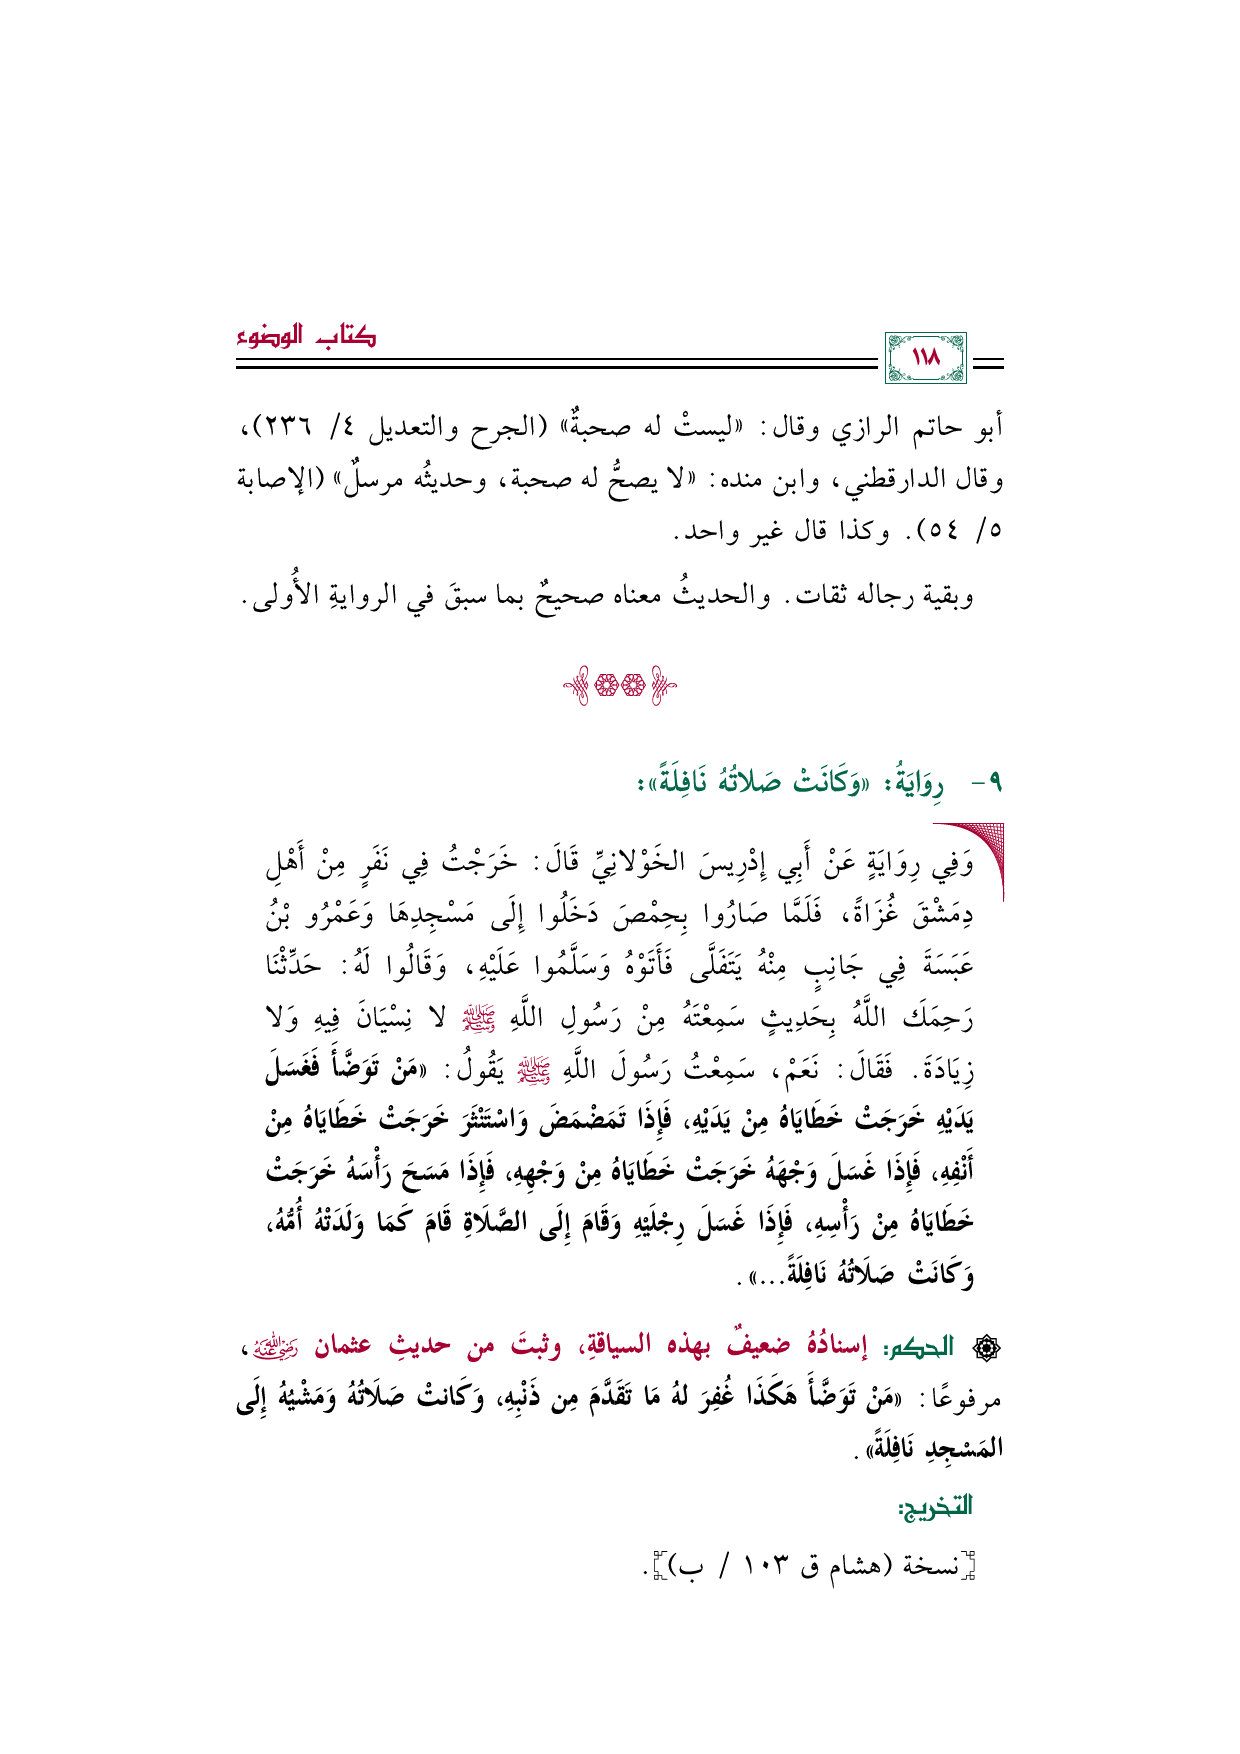 كتاب الوضوء
١١٨
أبو حاتم الرازي وقال: «ليستْ له صحبةٌ» (الجرح والتعديل ٤/ ٢٣٦)،
وقال الدارقطني، وابن منده: «لا يصحُّ له صحبة، وحديثُه مرسلٌ» (الإصابة
٥/ ٥٤). وكذا قال غير واحد.
وبقية رجاله ثقات. والحديثُ معناه صحيحٌ بما سبقَ في الروايةِ الأُولى.
٩- رِوَايَةُ: «وَكَانَتْ صَلاتُهُ نَافِلَةً»:
وَفِي رِوَايَةٍ عَنْ أَبِي إِدْرِيسَ الخَوْلانِيِّ قَالَ: خَرَجْتُ فِي نَفَرٍ مِنْ أَهْلِ
دِمَشْقَ غُزَاةً، فَلَمَّا صَارُوا بِحِمْصَ دَخَلُوا إِلَى مَسْجِدِهَا وَعَمْرُو بْنُ
عَبَسَةَ فِي جَانِبٍ مِنْهُ يَتَفَلَّى فَأَتَوْهُ وَسَلَّمُوا عَلَيْهِ، وَقَالُوا لَهُ: حَدِّثْنَا
رَحِمَكَ اللَّهُ بِحَدِيثٍ سَمِعْتَهُ مِنْ رَسُولِ اللَّهِ ﷺ لا نِسْيَانَ فِيهِ وَلا
زِيَادَةَ. فَقَالَ: نَعَمْ، سَمِعْتُ رَسُولَ اللَّهِ ﷺ يَقُولُ: «مَنْ تَوَضَّأَ فَغَسَلَ
يَدَيْهِ خَرَجَتْ خَطَايَاهُ مِنْ يَدَيْهِ، فَإِذَا تَمَضْمَضَ وَاسْتَنْثَرَ خَرَجَتْ خَطَايَاهُ مِنْ
أَنْفِهِ، فَإِذَا غَسَلَ وَجْهَهُ خَرَجَتْ خَطَايَاهُ مِنْ وَجْهِهِ، فَإِذَا مَسَحَ رَأْسَهُ خَرَجَتْ
خَطَايَاهُ مِنْ رَأْسِهِ، فَإِذَا غَسَلَ رِجْلَيْهِ وَقَامَ إِلَى الصَّلَاةِ قَامَ كَمَا وَلَدَتْهُ أُمُّهُ،
وَكَانَتْ صَلَاتُهُ نَافِلَةً...».
الحكم: إسنادُهُ ضعيفٌ بهذه السياقةِ، وثبتَ من حديثِ عثمان رضي الله عنه،
مرفوعًا: «مَنْ تَوَضَّأَ هَكَذَا غُفِرَ لهُ مَا تَقَدَّمَ مِن ذَنْبِهِ، وَكَانتْ صَلَاتُهُ وَمَشْيُهُ إِلَى
المَسْجِدِ نَافِلَةً».
التخريج:
[نسخة (هشام ق ١٠٣ / ب)].